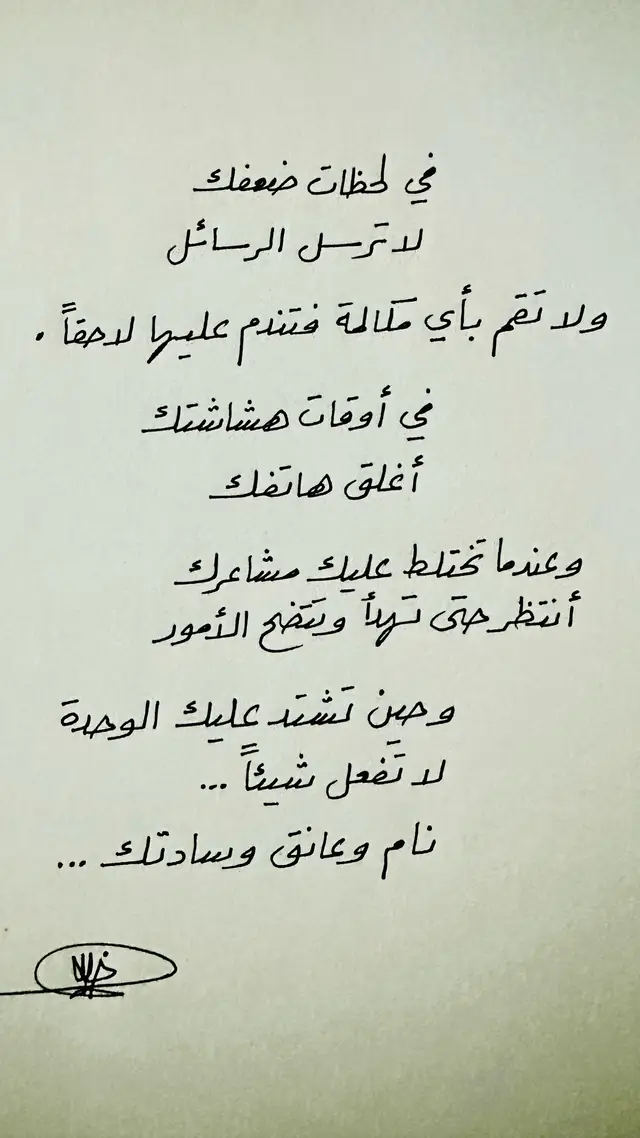 في لحظات ضعفك
لا ترسل الرسائل
ولا تقم بأي مكالمة فتندم عليها لاحقاً .
في أوقات هشاشتك
أغلق هاتفك
وعندما تختلط عليك مشاعرك
أنتظر حتى تهدأ وتتضح الأمور
وحين تشتد عليك الوحدة
لا تفعل شيئاً ...
نام وعانق وسادتك ...